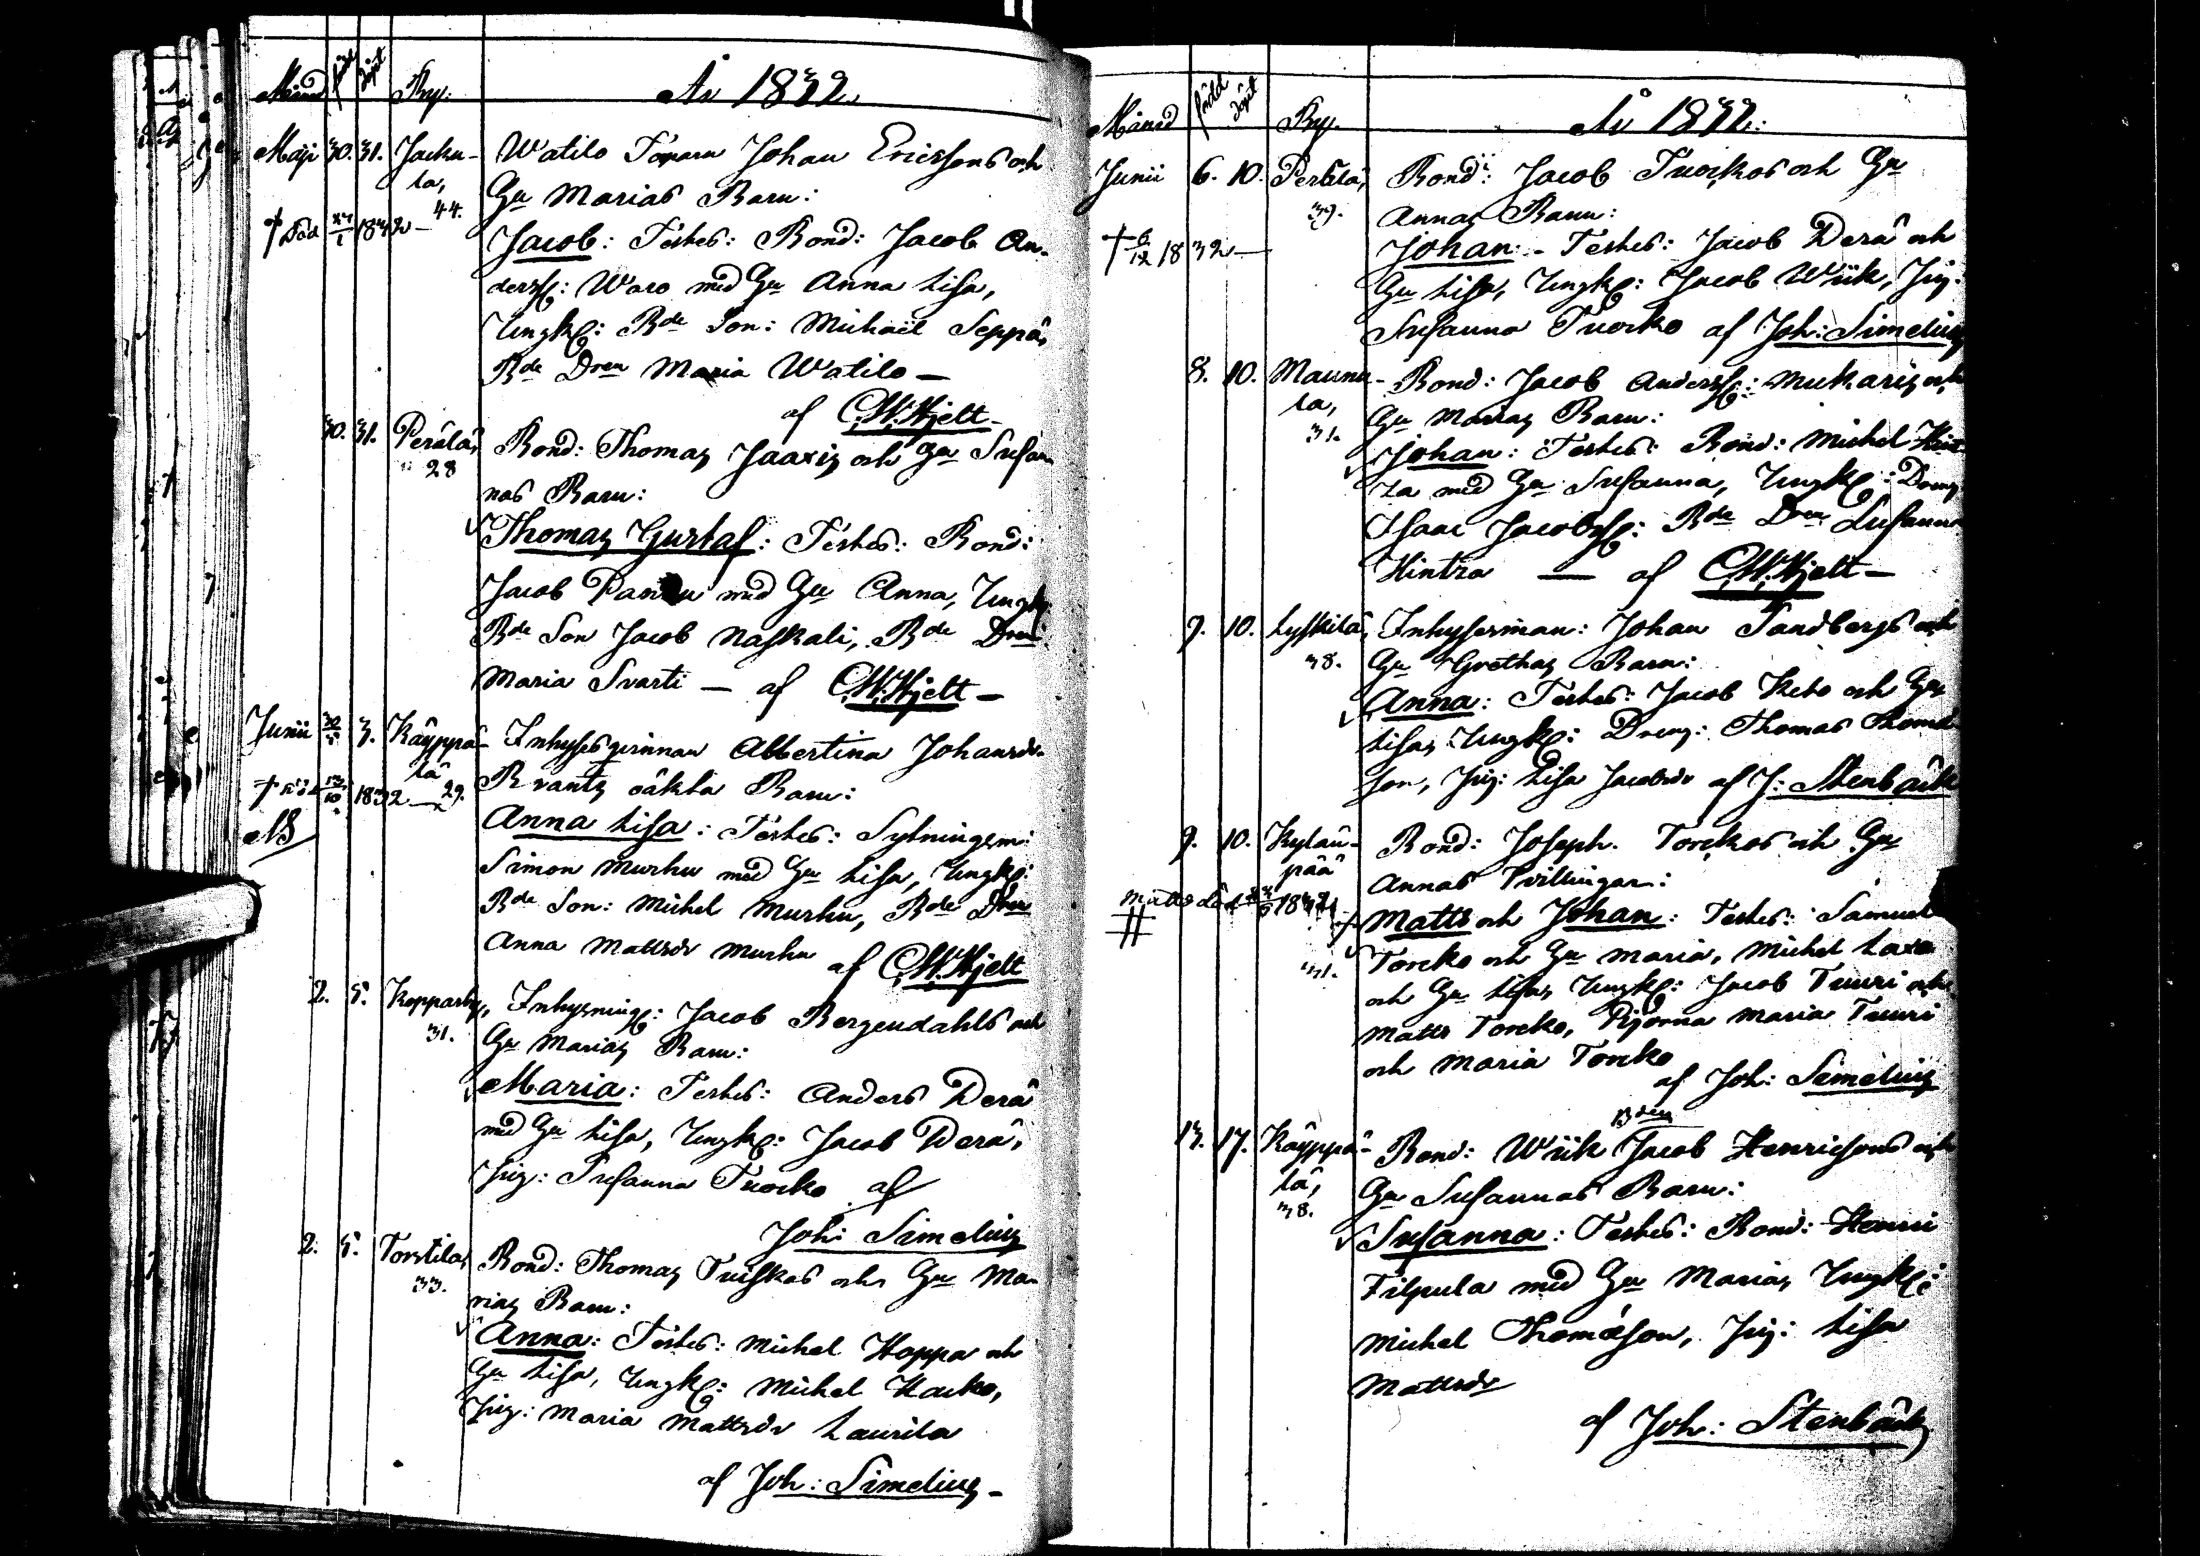 Månad född döpt By: År 1832.
Maji 30. 31. Jacku- Watilo Torparn Johan Ericssons och
la, Hu Marias Barn:
† död 1832 — 44.
Jacob: Testes: Bond: Jacob An-
derss: Waro med Hu Anna Lisa,
Ungk: Bde Son: Michaël Seppä,
Bde Dren Maria Watilo —
af C.W. Hjelt —
30. 31. Perälä, Bond: Thomas Jaaxis och Hu Susan-
28 nas Barn:
Thomas Gustaf: Testes: Bond:
Jacob Panzu med Hu Anna, Ungk:
Bde Son Jacob Naskali, Bde Dren:
Maria Svarti — af C.W. Hjelt —
Junii 30/5 3. Käyppä- Inhyses qvinnan Albertina Johansdr
lä
† död 1832 — 29. Brants oäkta Barn:
NB Anna Lisa: Testes: Sytningsm:
Simon Murhu med Hu Lisa, Ungk:
Bde Son: Michel Murhu, Bde Dren
Anna Mattsdr Murhu af C.W. Hjelt
2. 5. Kopparby, Inhysning: Jacob Bergendahls och
31. Hu Marias Barn:
Maria: Testes: Anders Derä
med Hu Lisa, Ungk: Jacob Derä,
Pig: Susanna Tuorko af
Joh: Simelius
2. 5. Torstila, Bond: Thomas Tuiskas och Hu Ma-
33. rias Barn:
Anna: Testes: Michel Hoppa och
Hu Lisa, Ungk: Michel Harko,
Pig: Maria Mattsdr Laurila
af Joh: Simelius —
Månad född döpt By. År 1832:
Junii 6. 10. Pertilä, Bond: Jacob Tuorkos och Hu
39. Annas Barn:
† 6/12 1832 — Johan: - Testes: Jacob Derä och
Hu Lisa, Ungk: Jacob Wiik, Pig:
Susanna Tuorko af Joh: Simelius
8. 10. Maunu- Bond: Jacob Anderss: Mukaris och
la, Hu Marias Barn:
31. Johan: Testes: Bond: Michel Hint-
za med Hu Susanna, Ungk: Dreng
Isaac Jacobss: Bde Dren Susanna
Hintza — af C.W. Hjelt —
9. 10. Lyskilä, Inhyserman: Johan Sandbergs och
38. Hu Grethas Barn:
Anna: Testes: Jacob Keto och Hu
Lisa, Ungk: Dreng: Thomas Thomæ
son, Pig: Lisa Jacobsdr af J: Stenbäck
9. 10. Kylän- Bond: Joseph. Torckos och Hu
pää Annas Tvillingar:
Matts död 1832
Matts och Johan: Testes: Samuel
31. Torcko och Hu Maria, Michel Laxo
och Hu Lisa, Ungk: Jacob Tuuri och
Matts Torcko, Pigorna Maria Tuuri
och Maria Torcko
af Joh: Simelius
13. 17. Käyppä- Bond: Wiik Jacob Henricsons och
lä, Hu Susannas Barn:
38. Susanna: Testes: Bond: Henric
Filpula med Hu Maria, Ungk:
Michel Thomæson, Pig: Lisa
Mattsdr
af Joh: Stenbäck